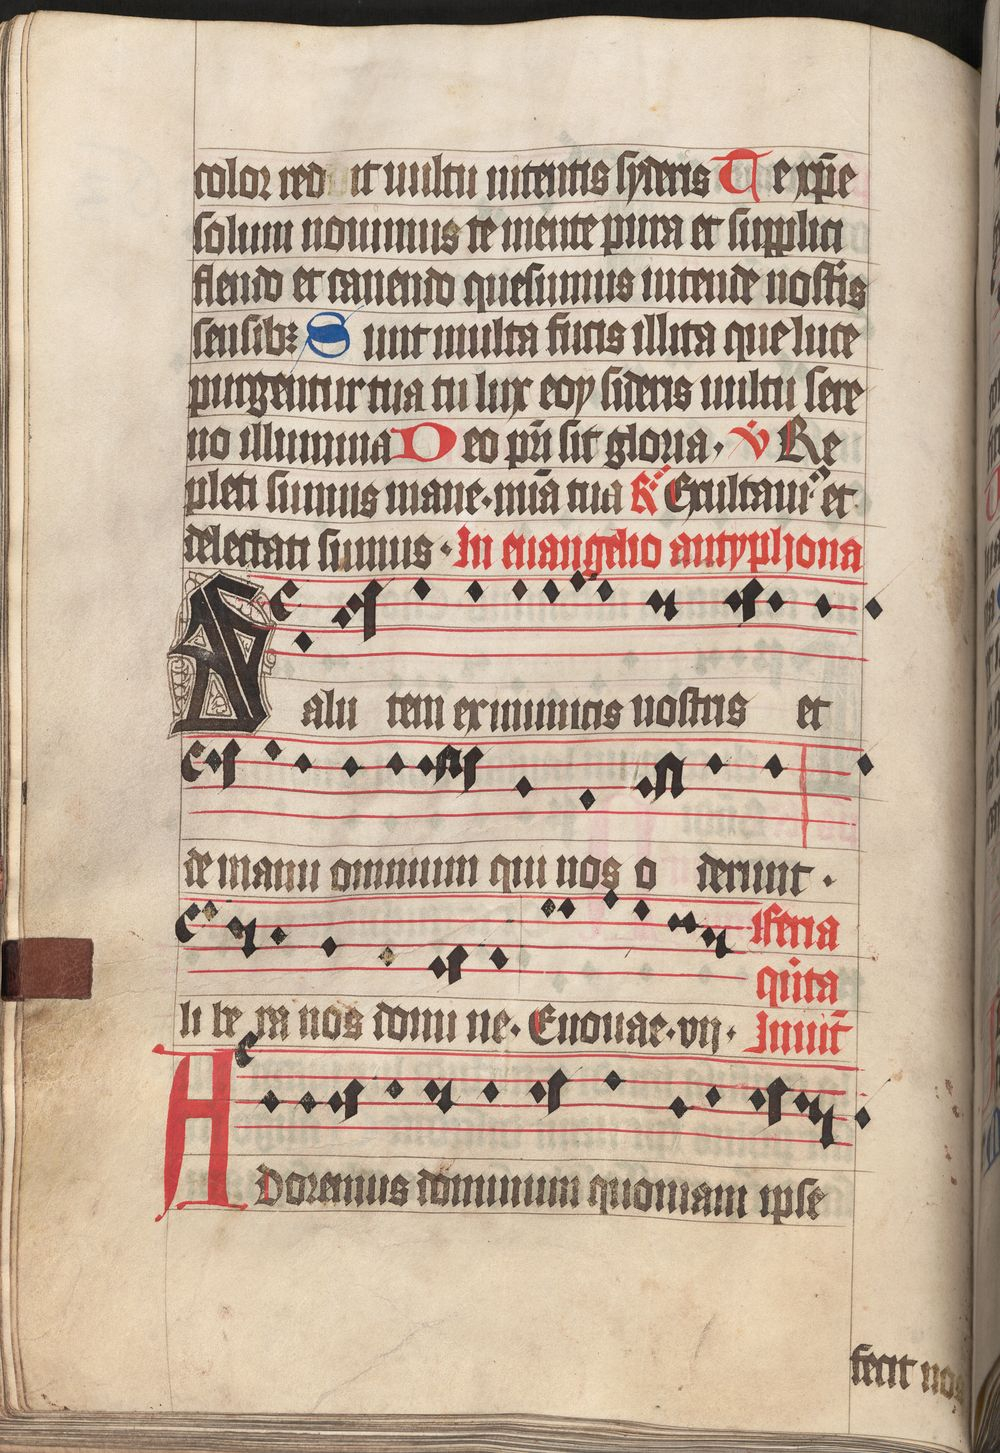 color red it uultu nitentis syderis Te xp̄e
solum nouimus te mente pura et supplici
flendo et canendo quesumus intende nostris
sensibꝫ Sunt multa fucis illita que luce
purgentur tua tu lux eoꝝ sideris uultu sere
no illumina Deo pr̄i sit gloria. V̇ Re
pleti sumus mane. mīa tua R Exultauiꝰ et
delectati sumus. In euangelio antyphona
Salu tem ex inimicis nostris et
de manu omnium qui nos o derunt.
feria
qūta
li be ra nos domi ne. Euouae. vn. Inuit̄
ADoremus dominum quoniam ipse
fecit nos